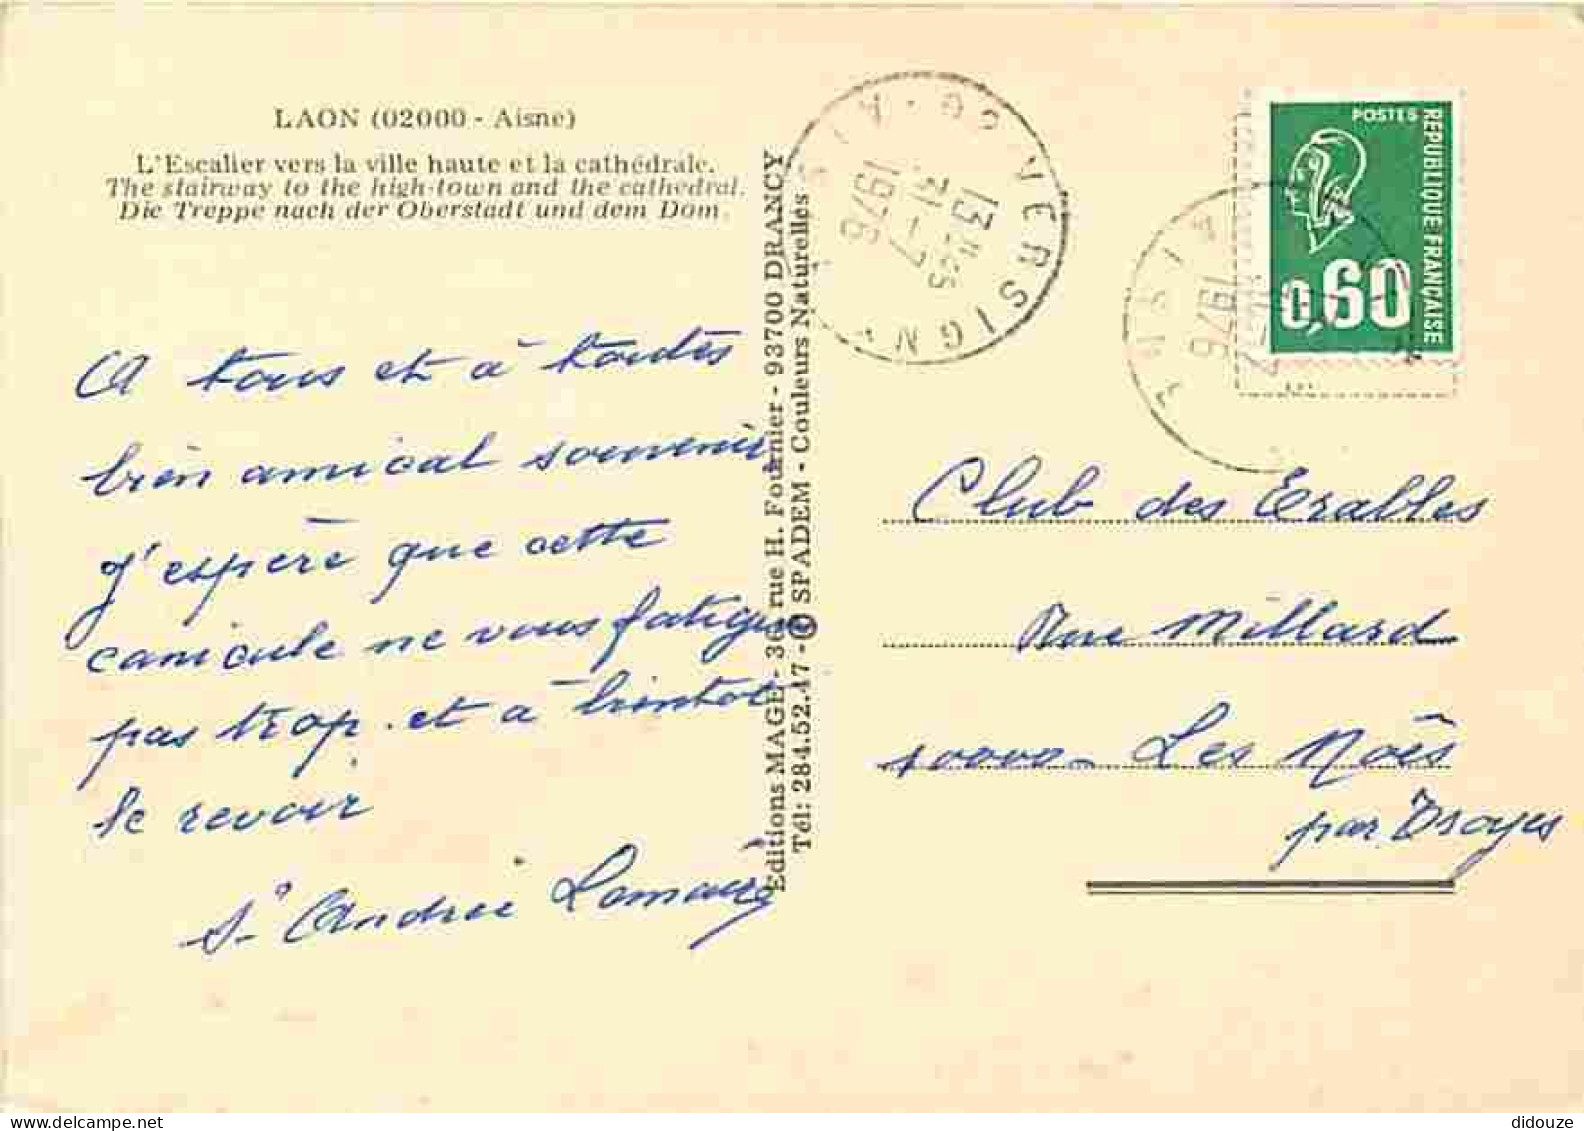 LAON (02000 - Aisne)
L'Escalier vers la ville haute et la cathédrale.
The stairway to the high-town and the cathedral.
Die Treppe nach der Oberstadt und dem Dom.
A tous et à toutes
bien amical souvenir
J'espère que cette
canicule ne vous fatigue
pas trop. et à bientot
le revoir
Sr Andrée
Editions MAGE - 36 rue H. Fournier - 93700 DRANCY
Tél: 284.52.47 - © SPADEM - Couleurs Naturelles
02 VERSIGNY AISNE
13 H 45
21 - 7
1976
POSTES
REPUBLIQUE FRANÇAISE
0,60
1976
Club des Erables
Rue Millard
10000 - Les Noës
par Troyes
didouze